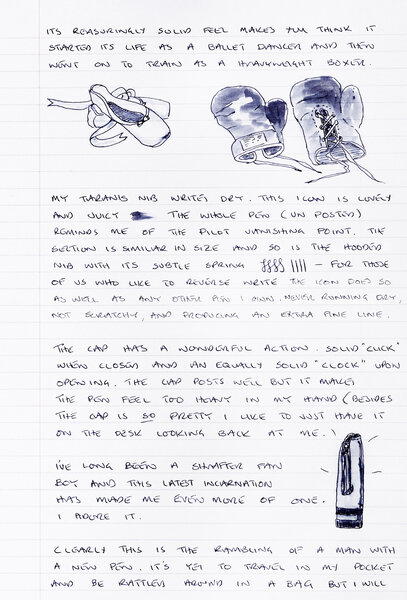 ITS REASURINGLY SOLID FEEL MAKES YOU THINK IT
STARTED ITS LIFE AS A BALLET DANCER AND THEN
WENT ON TO TRAIN AS A HEAVYWEIGHT BOXER.
MY TARANIS NIB WRITES DRY. THIS ICON IS LOVELY
AND JUICY THE WHOLE PEN (UN POSTED)
REMINDS ME OF THE PILOT VANISHING POINT. THE
SECTION IS SIMILIAR IN SIZE AND SO IS THE HOODED
NIB WITH ITS SUBTLE SPRING – FOR THOSE
OF US WHO LIKE TO REVERSE WRITE THE ICON DOES SO
AS WELL AS ANY OTHER PEN I OWN. NEVER RUNNING DRY,
NOT SCRATCHY, AND PRODUCING AN EXTRA FINE LINE.
THE CAP HAS A WONDERFUL ACTION. SOLID "CLICK"
WHEN CLOSED AND AN EQUALLY SOLID "CLOCK" UPON
OPENING. THE CAP POSTS WELL BUT IT MAKES
THE PEN FEEL TOO HEAVY IN MY HAND (BESIDES
THE CAP IS SO PRETTY I LIKE TO JUST HAVE IT
ON THE DESK LOOKING BACK AT ME.)
I'VE LONG BEEN A SHAFFER FAN
BOY AND THIS LATEST INCARNATION
HAS MADE ME EVEN MORE OF ONE.
I ADORE IT.
CLEARLY THIS IS THE RAMBLING OF A MAN WITH
A NEW PEN. IT'S YET TO TRAVEL IN MY POCKET
AND BE RATTLED AROUND IN A BAG BUT I WILL